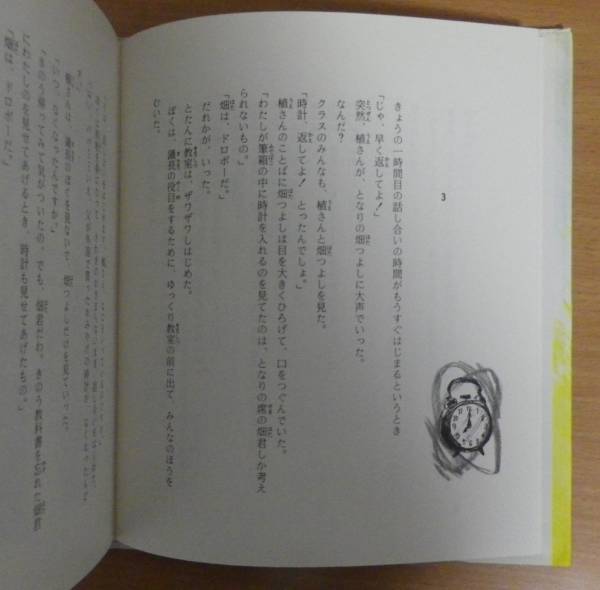 3
きょうの一時間目の話し合いの時間がもうすぐはじまるというとき
「じゃ、早く返してよ！」
突然、植さんが、となりの畑つよしに大声でいった。
なんだ？
クラスのみんなも、植さんと畑つよしを見た。
「時計、返してよ！　とったんでしょ。」
植さんのことばに畑つよしは目を大きくひろげて、口をつぐんでいた。
「わたしが筆箱の中に時計を入れるのを見てたのは、となりの席の畑君しか考え
られないもの。」
「畑は、ドロボーだ。」
だれかが、いった。
とたんに教室は、ザワザワしはじめた。
ぼくは、議長の役目をするために、ゆっくり教室の前に出て、みんなのほうを
むいた。
植さんは、議長のぼくを見ないで、畑つよしだけを見ていった。
「いつ、なくなったんですか。」
「きのう帰ってみて気がついたの。でも、畑君だわ。きのう教科書を忘れた畑君
にわたしのを見せてあげるとき、時計も見せてあげたもの。」
「畑は、ドロボーだ。」